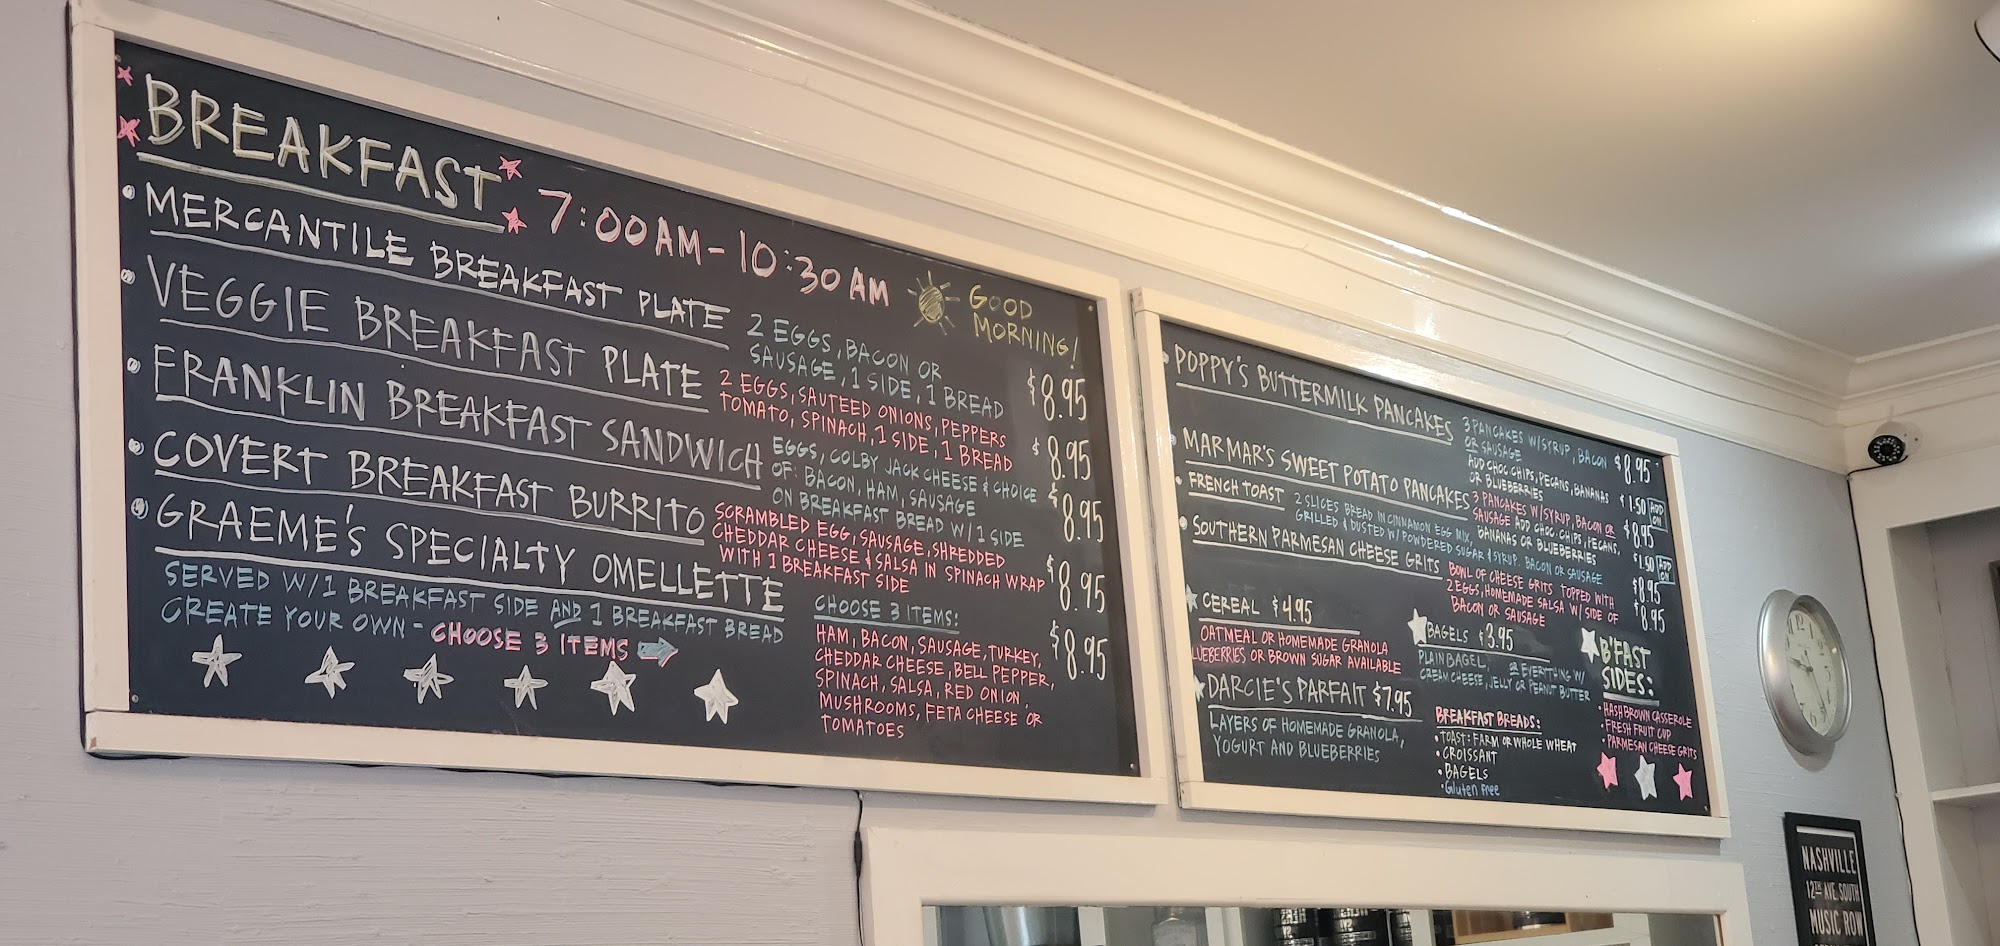 BREAKFAST 7:00 AM - 10:30 AM
GOOD
MORNING!
• MERCANTILE BREAKFAST PLATE
2 EGGS, BACON OR
SAUSAGE, 1 SIDE, 1 BREAD
$8.95
• VEGGIE BREAKFAST PLATE
2 EGGS, SAUTEED ONIONS, PEPPERS
TOMATO, SPINACH, 1 SIDE, 1 BREAD
$8.95
• FRANKLIN BREAKFAST SANDWICH
EGGS, COLBY JACK CHEESE & CHOICE
OF: BACON, HAM, SAUSAGE
ON BREAKFAST BREAD W/ 1 SIDE
$8.95
• COVERT BREAKFAST BURRITO
SCRAMBLED EGG, SAUSAGE, SHREDDED
CHEDDAR CHEESE & SALSA IN SPINACH WRAP
WITH 1 BREAKFAST SIDE
$8.95
• GRAEME'S SPECIALTY OMELLETTE
$8.95
SERVED W/ 1 BREAKFAST SIDE AND 1 BREAKFAST BREAD
CREATE YOUR OWN - CHOOSE 3 ITEMS
CHOOSE 3 ITEMS:
HAM, BACON, SAUSAGE, TURKEY,
CHEDDAR CHEESE, BELL PEPPER,
SPINACH, SALSA, RED ONION,
MUSHROOMS, FETA CHEESE OR
TOMATOES
• POPPY'S BUTTERMILK PANCAKES
3 PANCAKES W/ SYRUP, BACON
OR SAUSAGE
$8.95
ADD CHOC CHIPS, PECANS, BANANAS
OR BLUEBERRIES
$1.50 ADD ON
• MARMAR'S SWEET POTATO PANCAKES
3 PANCAKES W/ SYRUP, BACON OR
SAUSAGE ADD CHOC CHIPS, PECANS,
BANANAS OR BLUEBERRIES
$8.95
$1.50 ADD ON
• FRENCH TOAST
2 SLICES BREAD IN CINNAMON EGG MIX,
GRILLED & DUSTED W/ POWDERED SUGAR & SYRUP. BACON OR SAUSAGE
$8.95
• SOUTHERN PARMESAN CHEESE GRITS
BOWL OF CHEESE GRITS TOPPED WITH
2 EGGS, HOMEMADE SALSA W/ SIDE OF
BACON OR SAUSAGE
$8.95
CEREAL $4.95
OATMEAL OR HOMEMADE GRANOLA
LUEBERRIES OR BROWN SUGAR AVAILABLE
DARCIE'S PARFAIT $7.95
LAYERS OF HOMEMADE GRANOLA,
YOGURT AND BLUEBERRIES
BAGELS $3.95
PLAIN BAGEL, OR EVERYTHING W/
CREAM CHEESE, JELLY OR PEANUT BUTTER
BREAKFAST BREADS:
• TOAST: FARM OR WHOLE WHEAT
• CROISSANT
• BAGELS
• Gluten free
B'FAST
SIDES:
• HASHBROWN CASSEROLE
• FRESH FRUIT CUP
• PARMESAN CHEESE GRITS
NASHVILLE
12TH AVE. SOUTH
MUSIC ROW